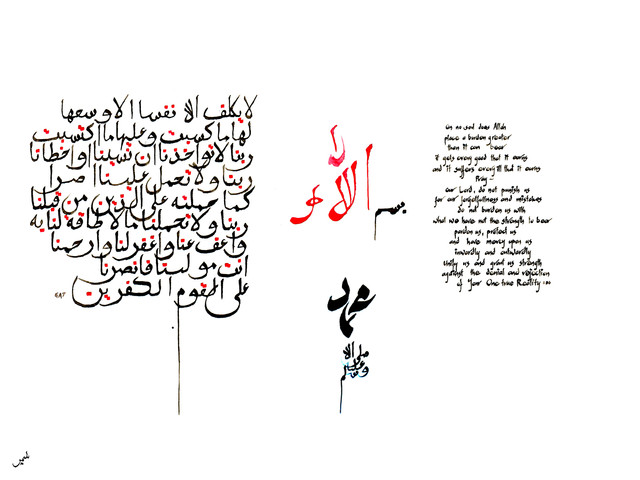 لا يكلف الله نفسا الا وسعها
لها ما كسبت وعليها ما اكتسبت
ربنا لا تواخذنا ان نسينا او اخطانا
ربنا ولا تحمل علينا اصرا
كما حملته على الذين من قبلنا
ربنا ولا تحملنا ما لا طاقة لنا به
واعف عنا واغفر لنا وارحمنا
انت مولىنا فانصرنا
على القوم الكفرين
بسم الله
محمد
صلى الله
عليه
وسلم
On no soul does Allah
place a burden greater
than it can bear
it gets every good that it earns
and it suffers every ill that it earns
Pray -
our Lord, do not punish us
for our forgetfulness and mistakes
do not burden us with
what we have not the strength to bear
pardon us, protect us
and have mercy upon us
inwardly and outwardly
Unify us and grant us strength
against the denial and rejection
of Your One true Reality